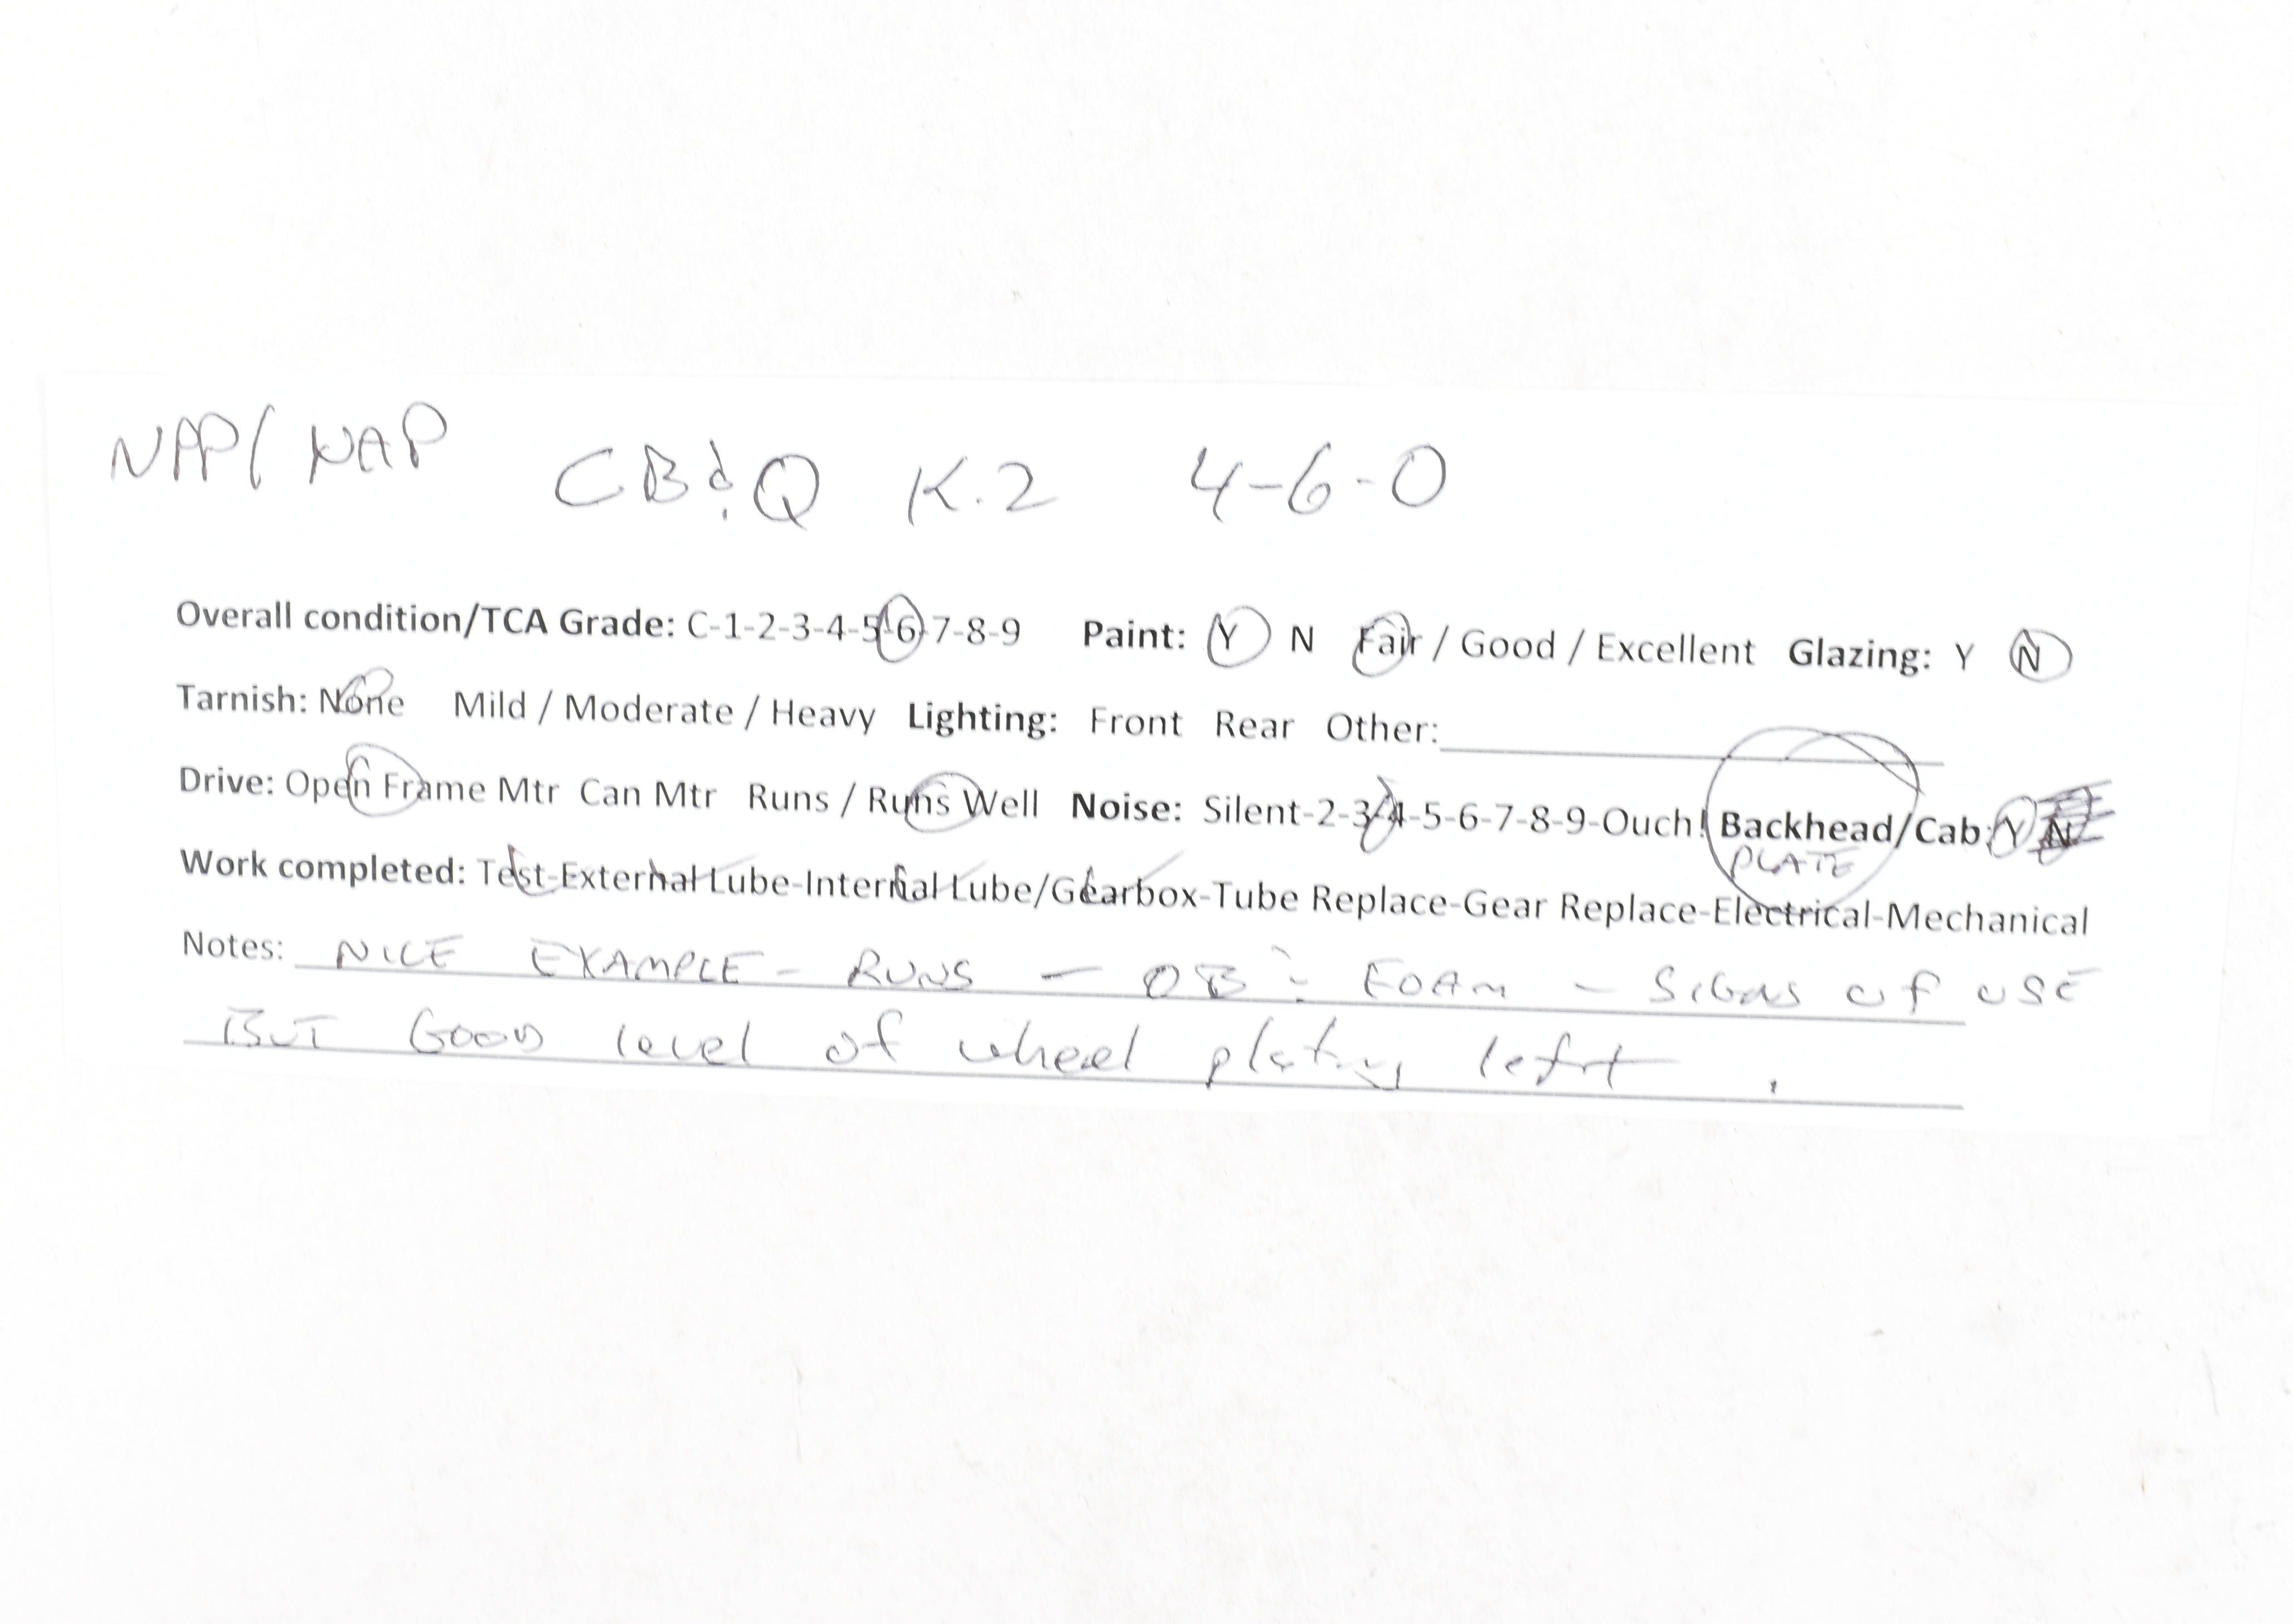 NPP/ NAP CB&Q K.2 4-6-0
Overall condition/TCA Grade: C-1-2-3-4-5-6-7-8-9 Paint: Y N Fair / Good / Excellent Glazing: Y N
Tarnish: None Mild / Moderate / Heavy Lighting: Front Rear Other:
Drive: Open Frame Mtr Can Mtr Runs / Runs Well Noise: Silent-2-3-4-5-6-7-8-9-Ouch! Backhead/Cab: Y N
PLATE
Work completed: Test-External Lube-Internal Lube/Gearbox-Tube Replace-Gear Replace-Electrical-Mechanical
Notes: NICE EXAMPLE - RUNS - OB & FOAM - SIGNS OF USE
BUT GOOD level of wheel plating left .